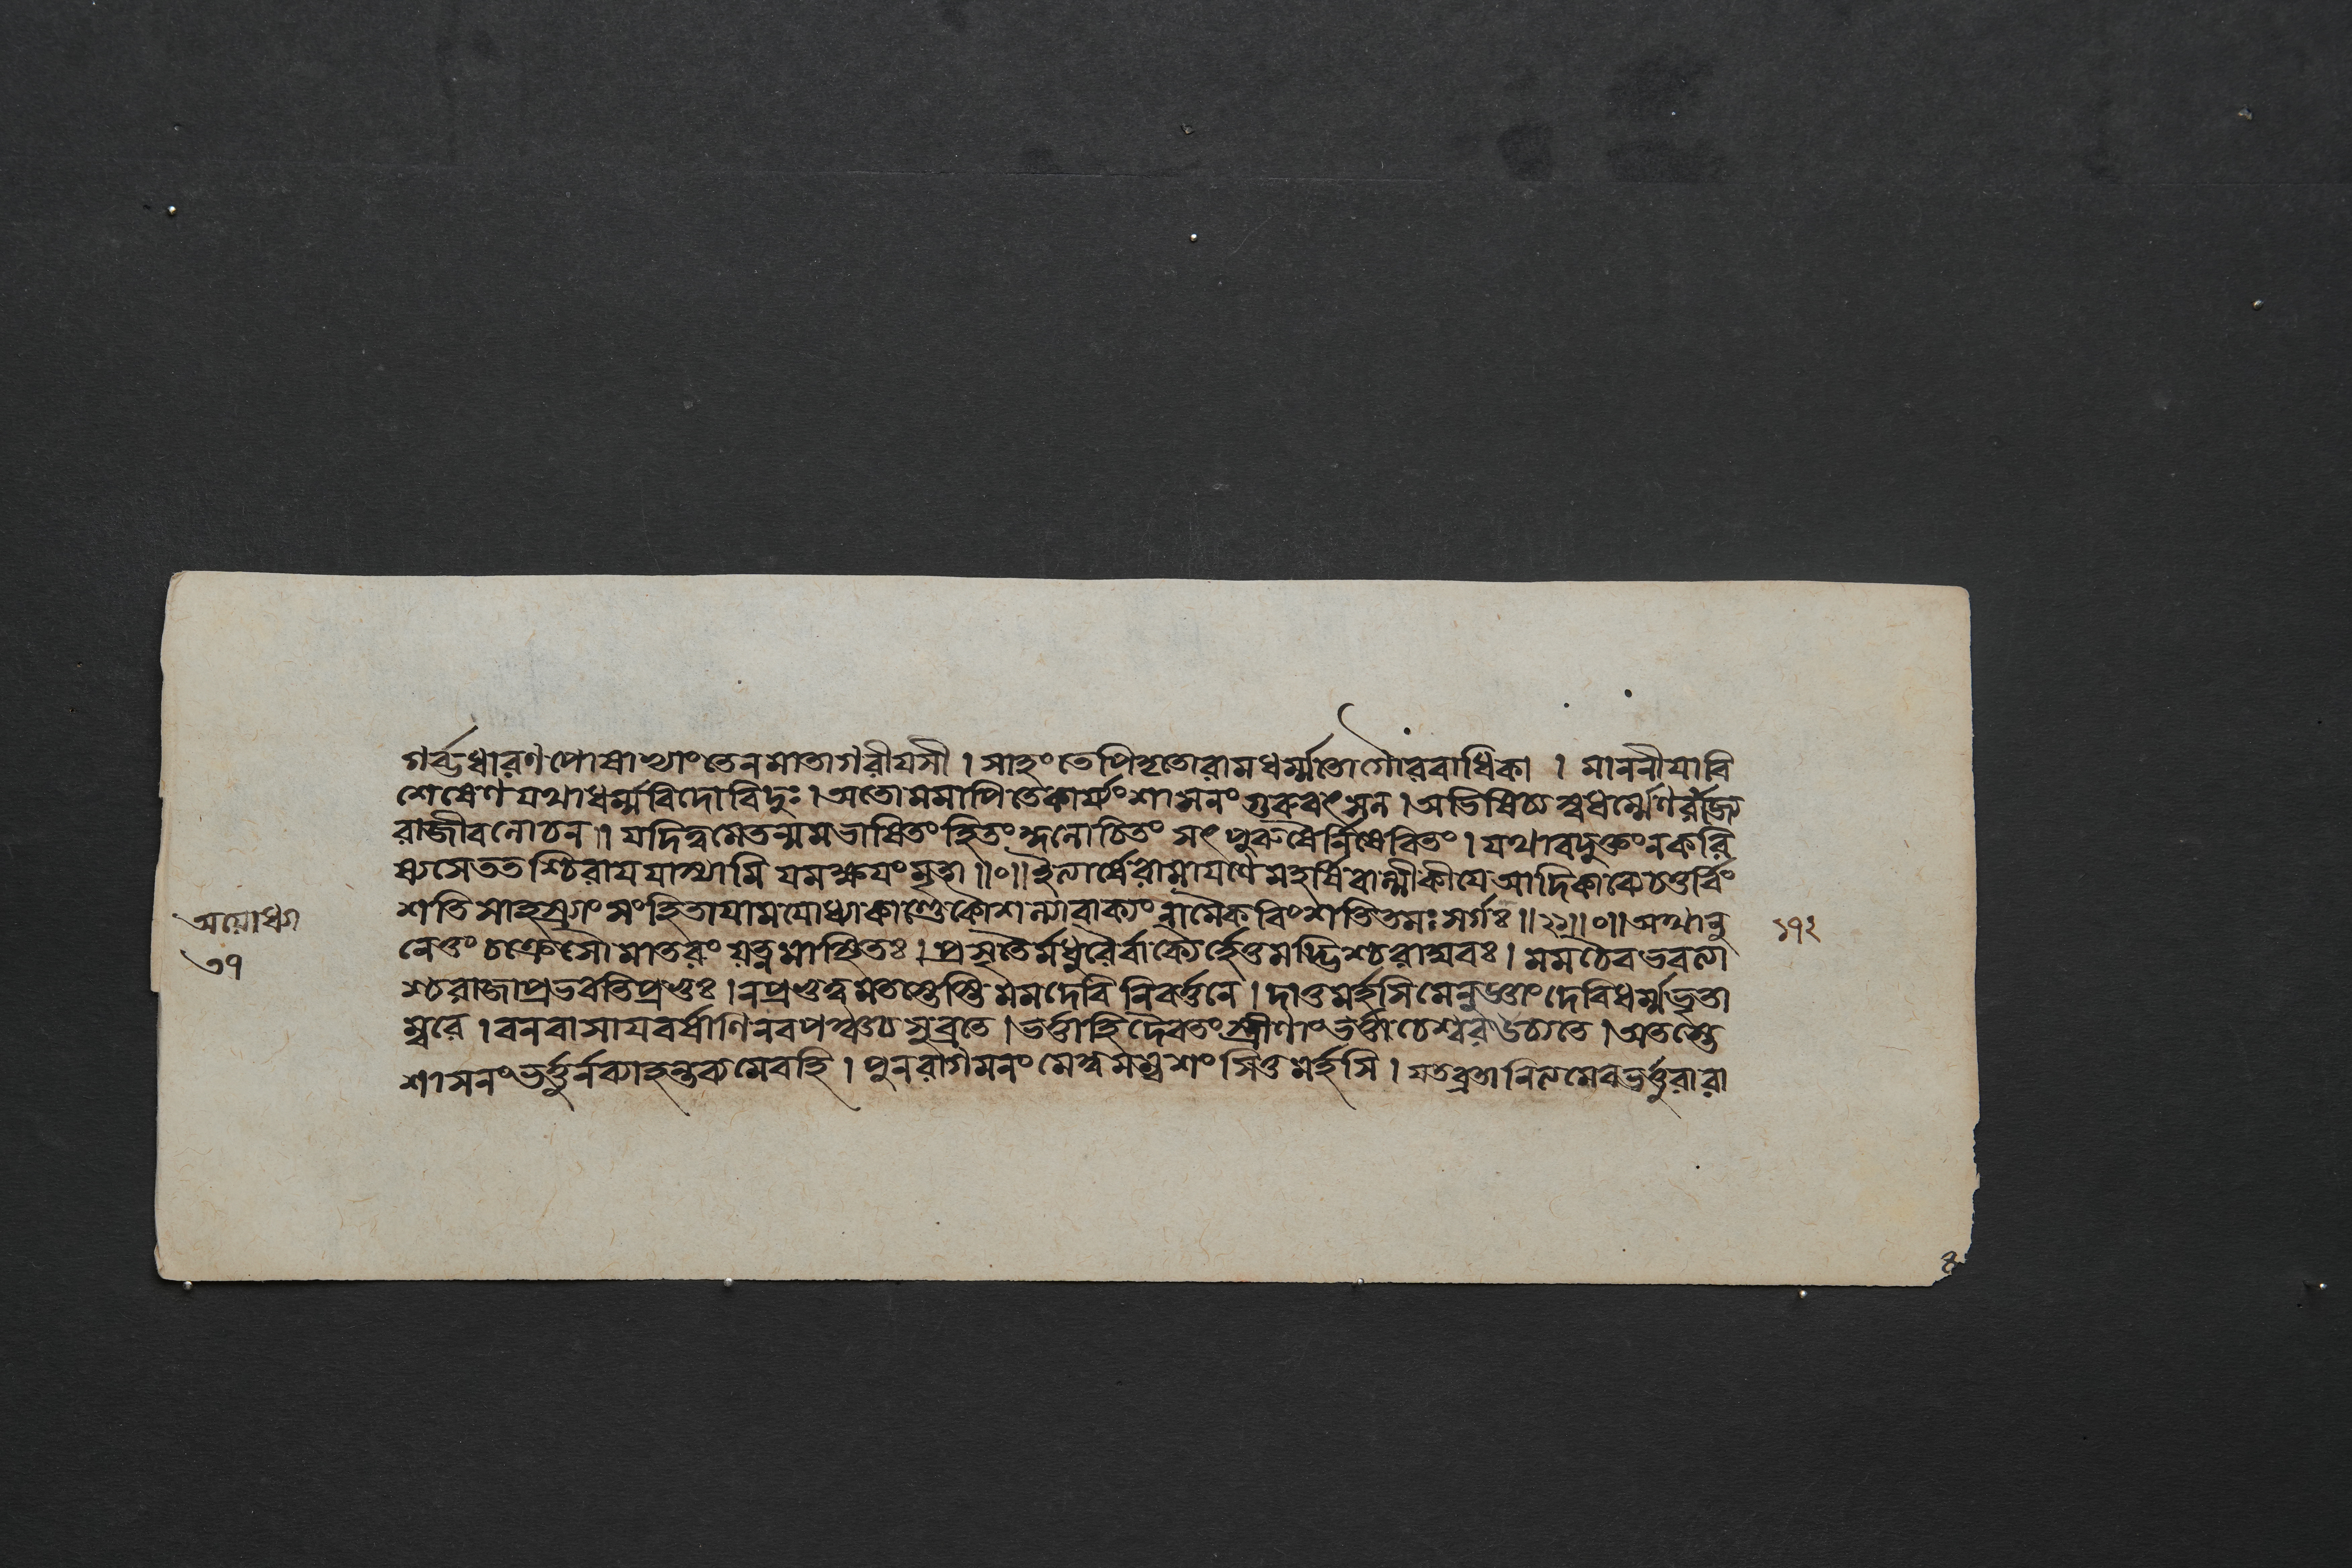 গর্ব্ভধারণপোষাভ্যাংতেনমাতাগরীযসী । সাহংতেপিতৃতোরামধর্ম্মতোগৌরবাধিকা । মাননীযাবি
শেষেণযথাধর্ম্মবিদোবিদুঃ । অতোমমাপিতেকার্য্যংশাসনংগুরুবৎসল । অভিষিচ্যস্বধর্ম্মেণরাজ্য
রাজীবলোচন । যদিত্বমেতন্মমভাষিতংহিতংজনোচিতংসৎপুরুষৈর্নিষেবিতং । যথাবদুক্তংনকরি
ষ্যসেততশ্চিরাযযাস্যামিযমক্ষযংমৃতা ॥০॥ ইত্যার্ষেরামাযণেমহর্ষিবাল্মীকীযেআদিকাব্যেচতুর্বিং
শতিসাহস্র্যাংসংহিতাযামযোধ্যাকাণ্ডেকৌশল্যাবাক্যংনামৈকবিংশতিতমঃসর্গঃ ॥২১॥০॥ অথানু
নেতুংচক্রেসৌমাতরংযত্নমাস্থিতঃ । প্রসৃতৈর্মধুরৈর্বাক্যৈর্হেতুমদ্ভিশ্চরাঘবঃ । মমচৈবভবত্যা
শ্চরাজাপ্রভবতিপ্রভুঃ । নপ্রভুত্বমতস্তেস্তিমমদেবিনিবর্ত্তনে । দাতুমর্হসিমেনুজ্ঞাংদেবিধর্ম্মভৃতা
ম্বরে । বনবাসাযবর্ষাণিনবপঞ্চচসুব্রতে । ভর্ত্তাহিদৈবতংস্ত্রীণাংভর্ত্তাচেশ্বরউচ্যতে । অতস্তে
শাসনংভর্ত্তুর্নব্যাহন্তব্যমেবহি । পুনরাগমনংমেত্বমম্বশংসিতুমর্হসি । যতব্রতানিত্যমেবভর্ত্তুরারা
অযোধ্যা
৩৭
১৭২